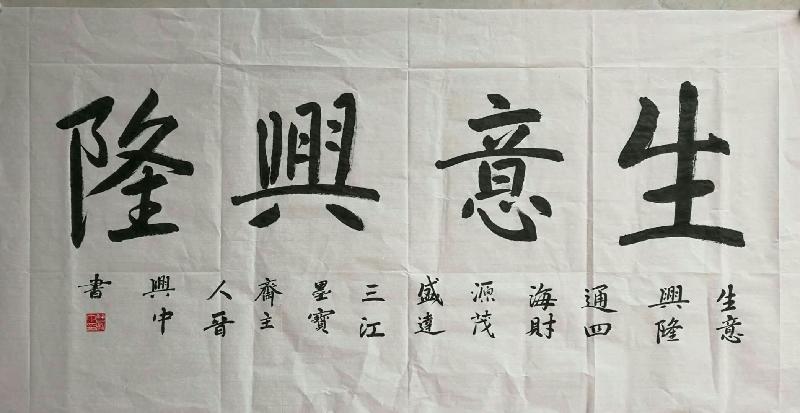 生意興隆
生意
興隆
通四
海財
源茂
盛達
三江
墨寶
齋主
人晉
興中
書